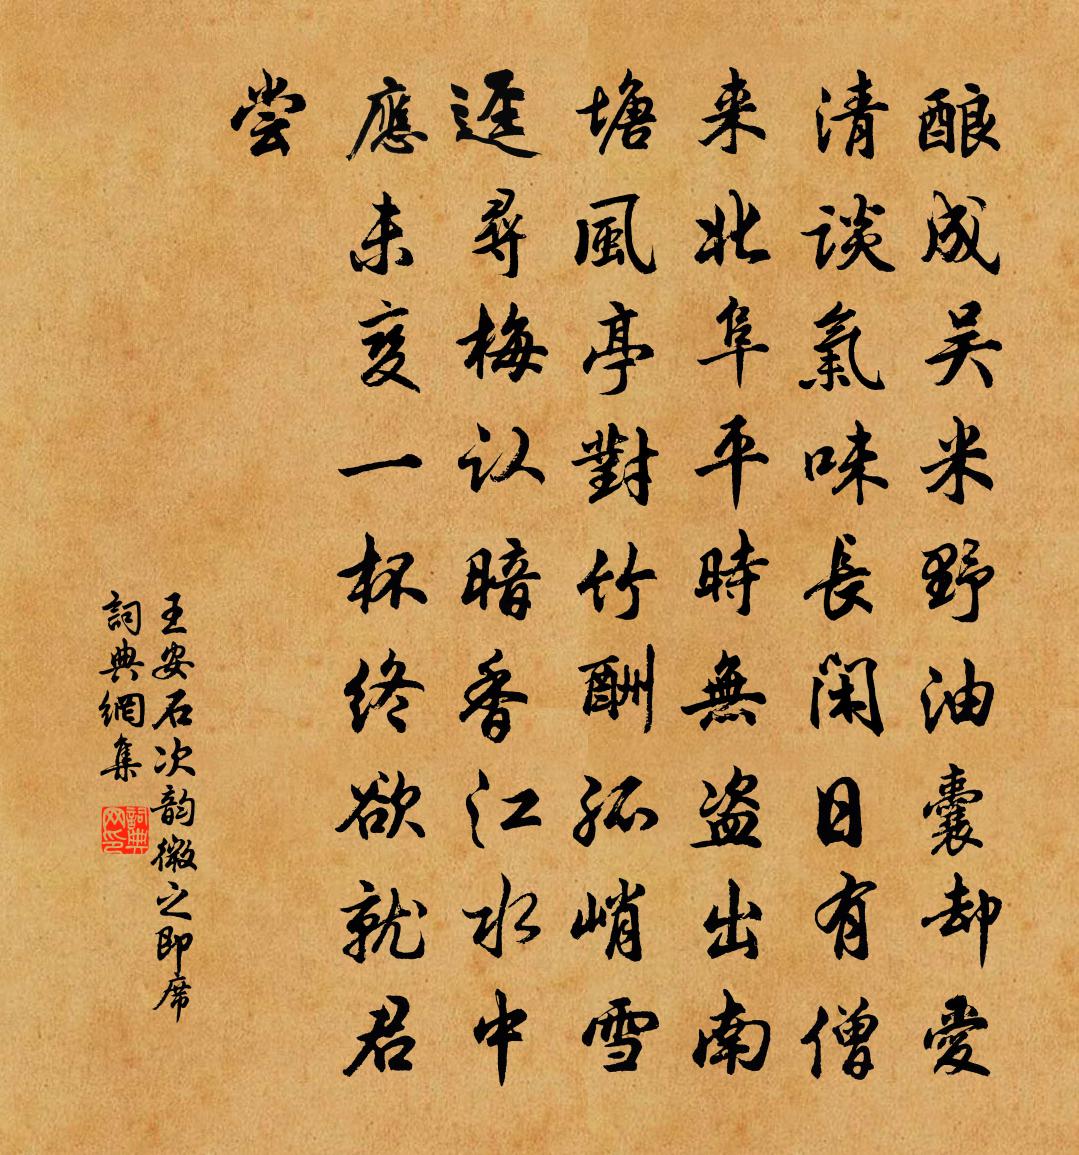 酿成吴米野油囊却愛
清談氣味長闲日有僧
来北阜平時無盗出南
塘風亭對竹酬孤峭雪
逕尋梅认暗香江水中
應未变一杯终欲就君
尝
王安石次韵微之即席
詞典網集
詞典网印